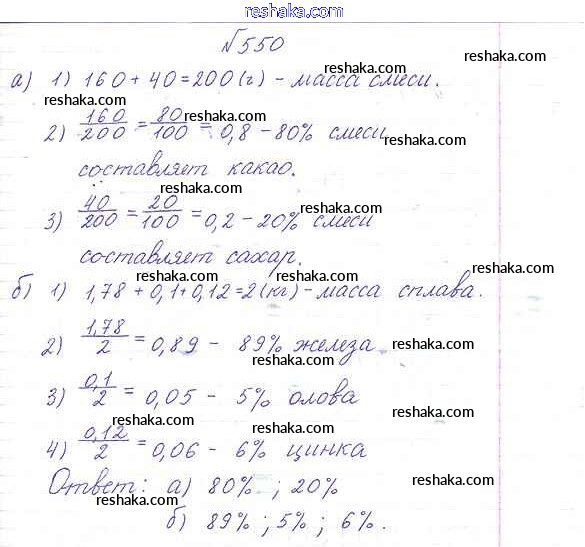 reshaka.com
№550
reshaka.com
reshaka.com
а) 1) 160 + 40 = 200 (г) - масса смеси.
reshaka.com
reshaka.com
2) 160/200 = 80/100 = 0,8 - 80% смеси
reshaka.com
составляет какао.
reshaka.com
3) 40/200 = 20/100 = 0,2 - 20% смеси
reshaka.com
составляет сахар.
reshaka.com reshaka.com reshaka.com
б) 1) 1,78 + 0,1 + 0,12 = 2 (кг) - масса сплава.
2) 1,78/2 = 0,89 - 89% железа
reshaka.com
reshaka.com
3) 0,1/2 = 0,05 - 5% олова
reshaka.com reshaka.com
4) 0,12/2 = 0,06 - 6% цинка
reshaka.com
Ответ: а) 80% ; 20%
reshaka.com
reshaka.com
б) 89% ; 5% ; 6%.
reshaka.com